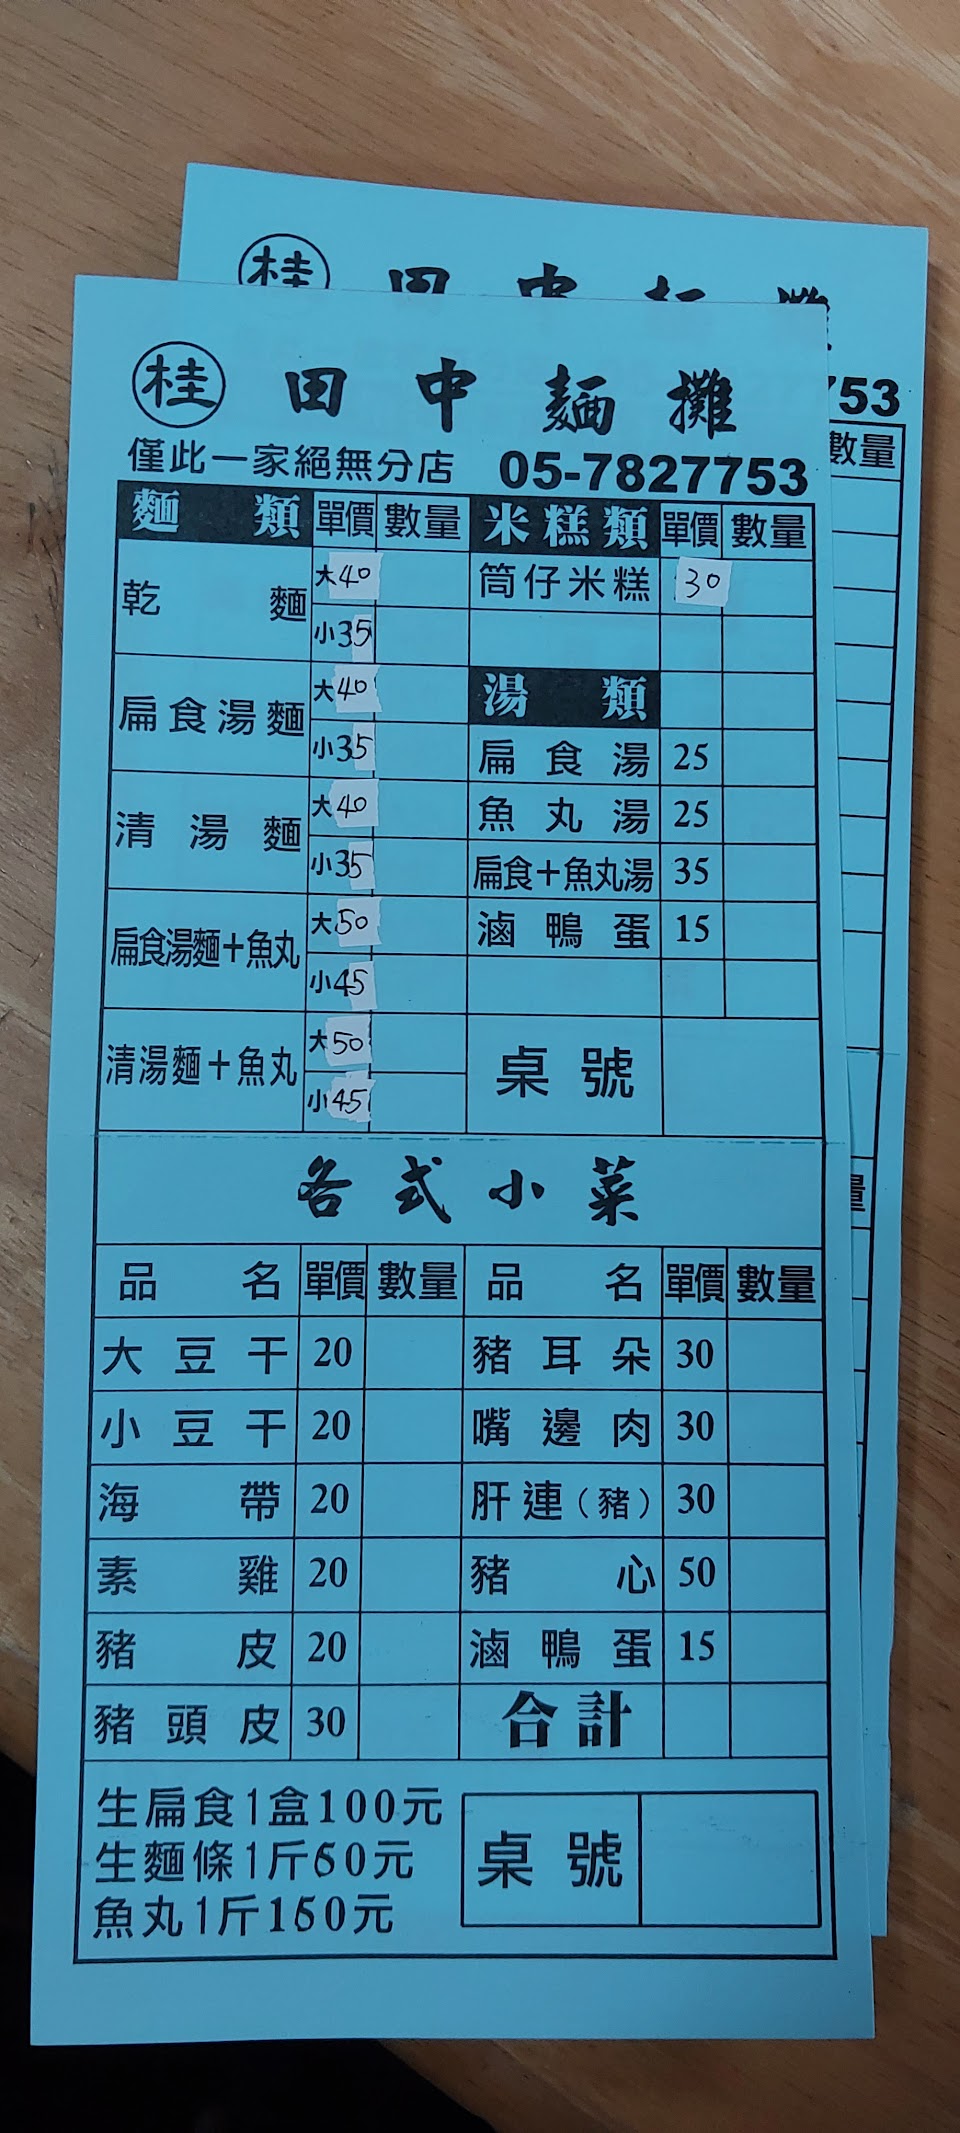 桂 田中麵攤
桂 田中麵攤
僅此一家絕無分店 05-7827753
753
數量
麵類 單價 數量 米糕類 單價 數量
乾麵 大40 筒仔米糕 30
小35
扁食湯麵 大40 湯類
小35 扁食湯 25
清湯麵 大40 魚丸湯 25
小35 扁食+魚丸湯 35
扁食湯麵+魚丸 大50 滷鴨蛋 15
小45
清湯麵+魚丸 大50 桌號
小45
各式小菜
量
品名 單價 數量 品名 單價 數量
大豆干 20 豬耳朵 30
小豆干 20 嘴邊肉 30
海帶 20 肝連(豬) 30
素雞 20 豬心 50
豬皮 20 滷鴨蛋 15
豬頭皮 30 合計
生扁食1盒100元
生麵條1斤50元 桌號
魚丸1斤150元